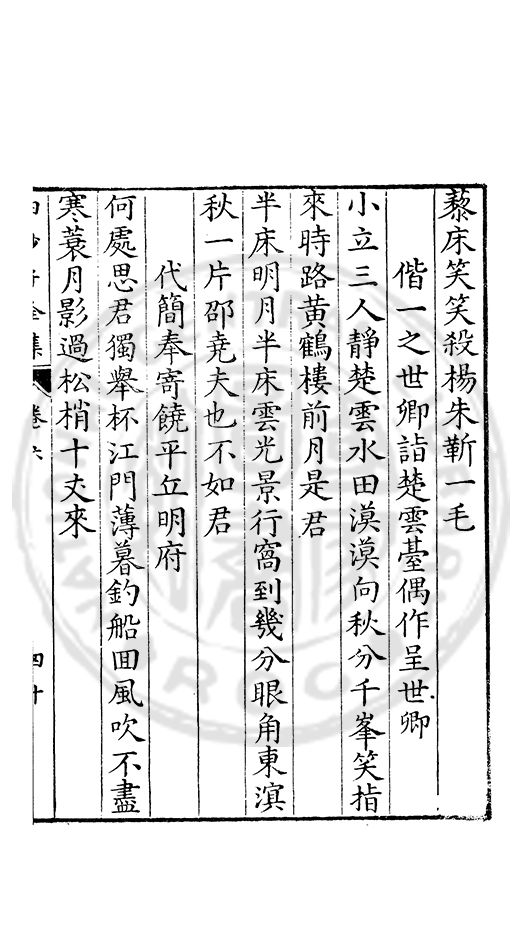 藜床笑笑殺楊朱靳一毛
偕一之世卿詣楚雲䑓偶作呈世卿
小立三人靜楚雲水田漠漠向秋分千峯笑指
來時路黃鶴樓前月是君
半床明月半床雲光景行窩到幾分眼角東濱
秋一片邵堯夫也不如君
代簡奉寄饒平丘明府
何處思君獨舉杯江門薄暮釣船囬風吹不盡
寒蓑月影過松梢十丈來
卷六
四十